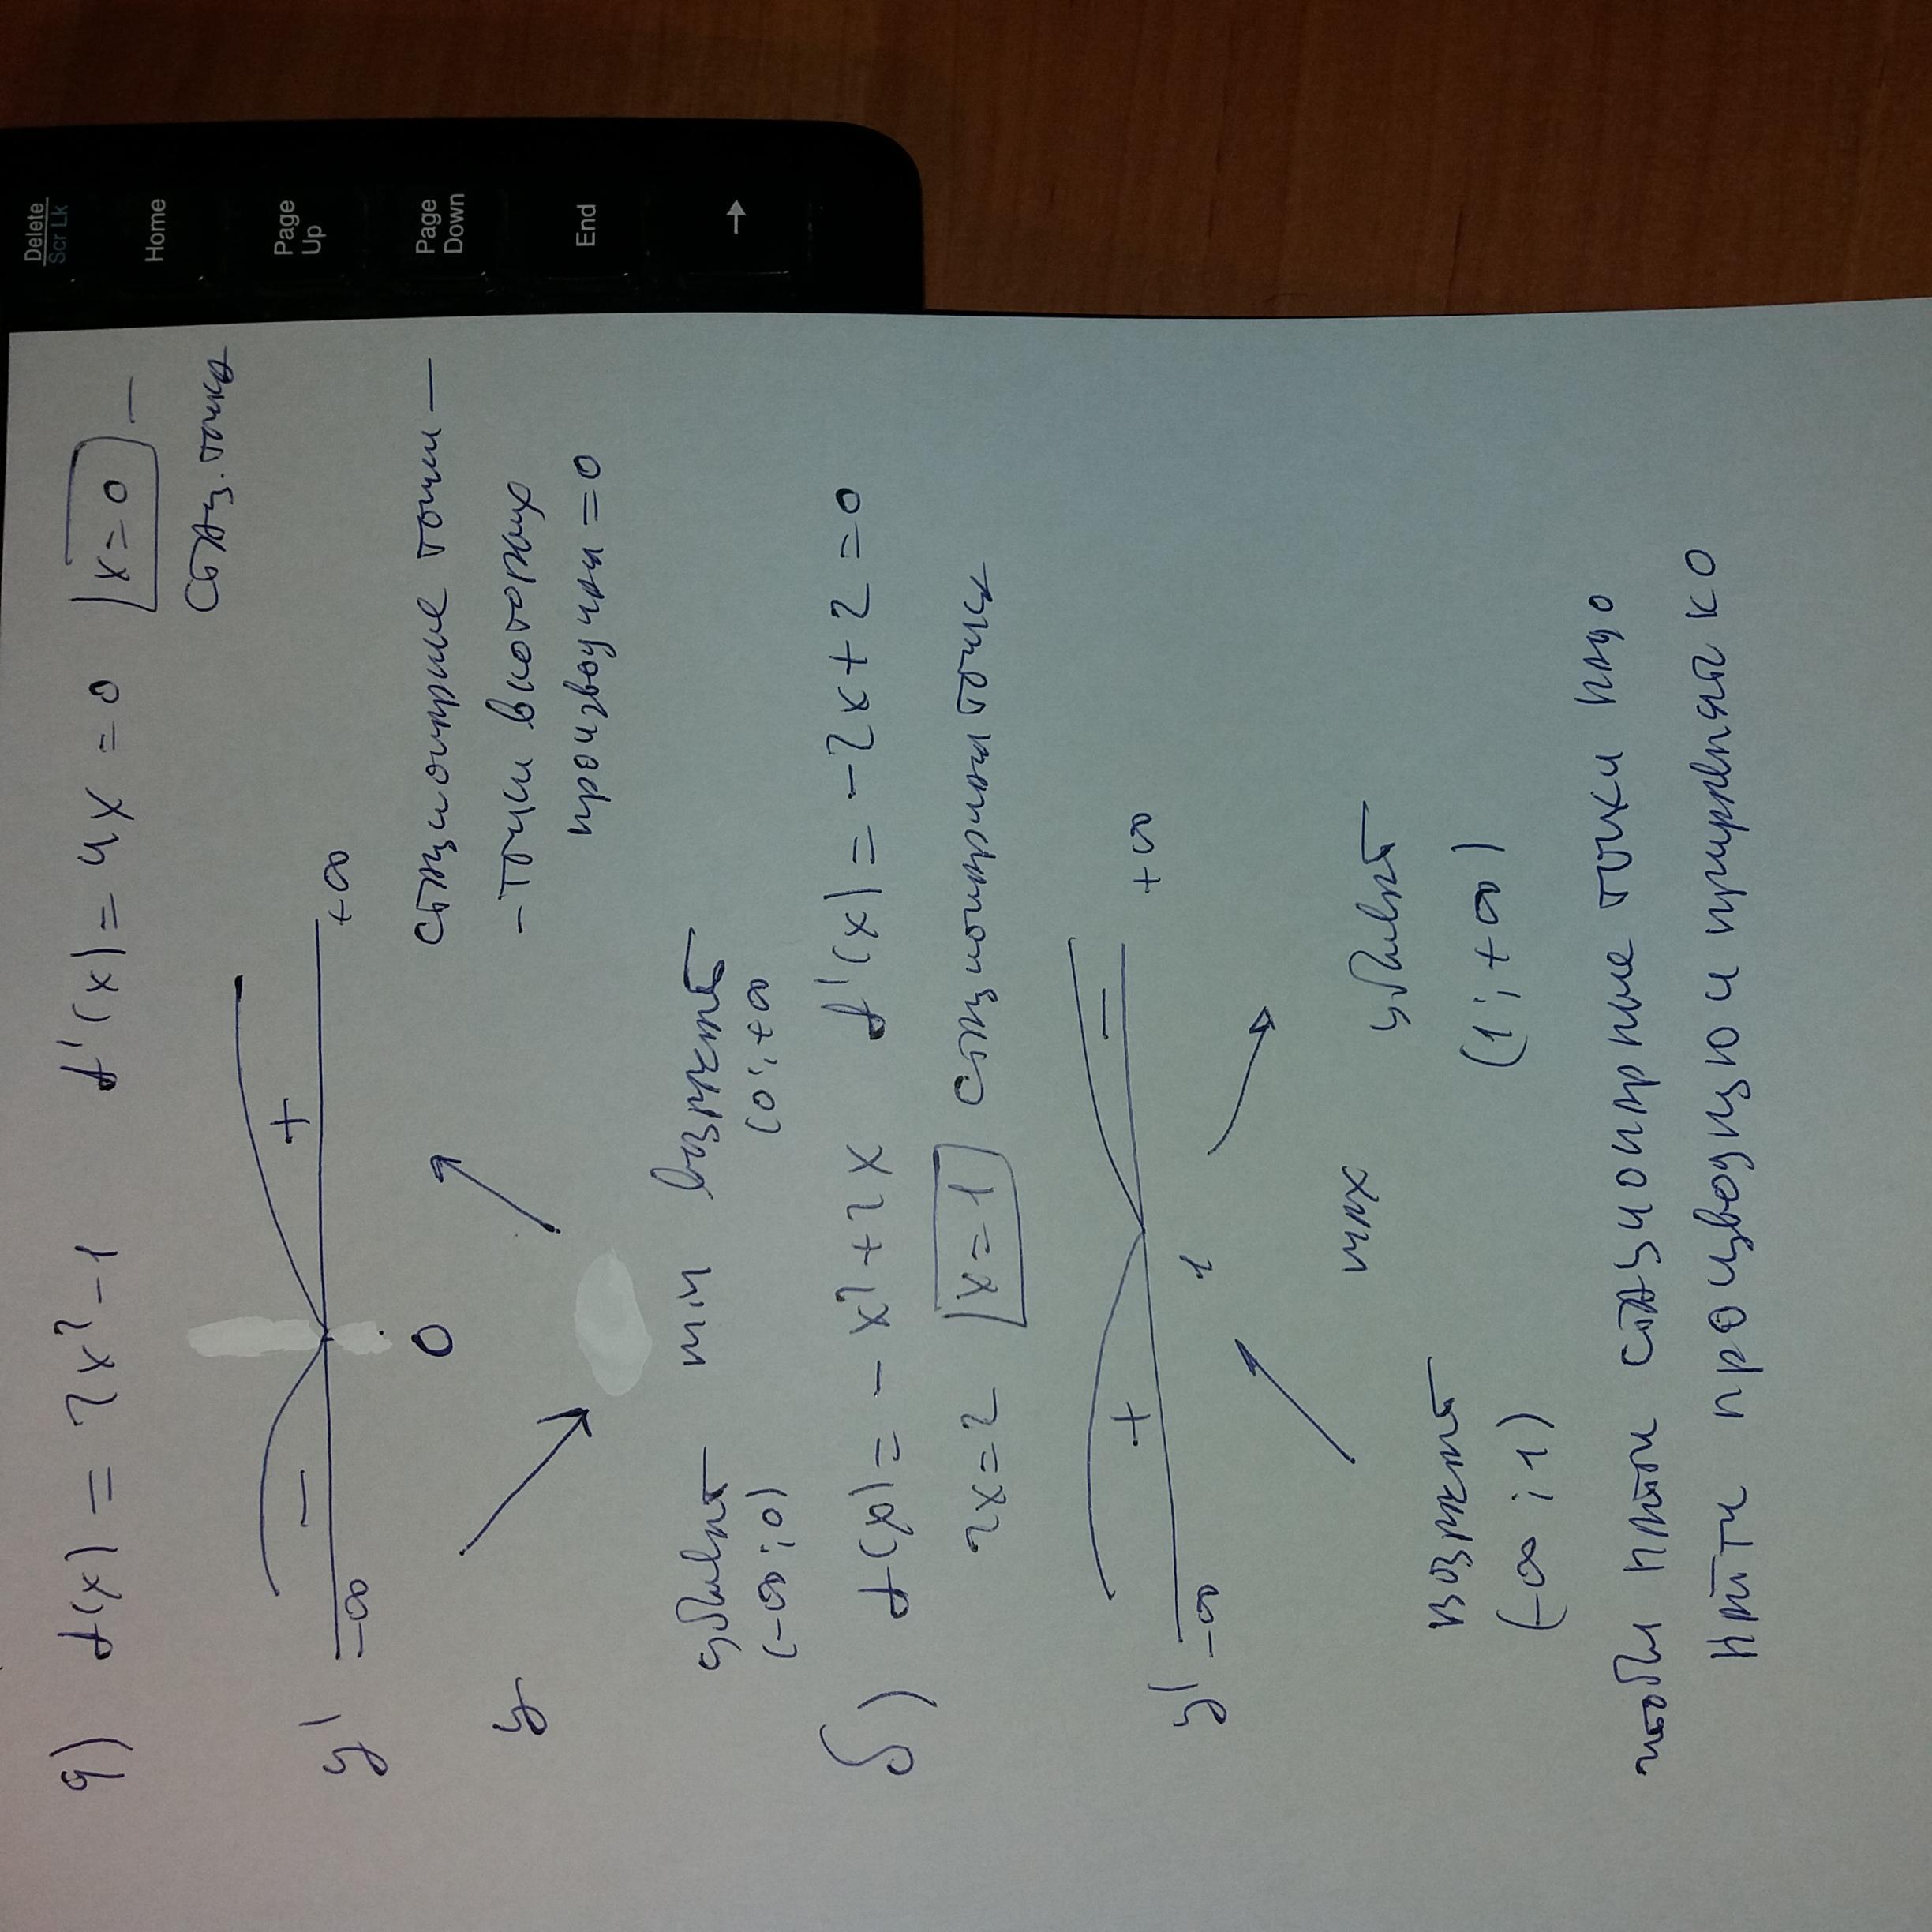 Delete
Scr Lk
Home
Page
Up
Page
Down
End
→
а) f(x) = 2x² - 1 f'(x) = 4x = 0 x = 0 —
стац. точка
y' - +
-∞ 0 +∞
стационарные точки —
y - точки в которых
производная = 0
убывает min возрастает
(-∞; 0) (0; +∞)
б) f(x) = - x² + 2x f'(x) = -2x + 2 = 0
2x = 2 x = 1 стационарная точка
y' + -
-∞ 1 +∞
max убывает
возрастает (1; +∞)
(-∞; 1)
чтобы найти стационарные точки надо
найти производную и приравнять к 0